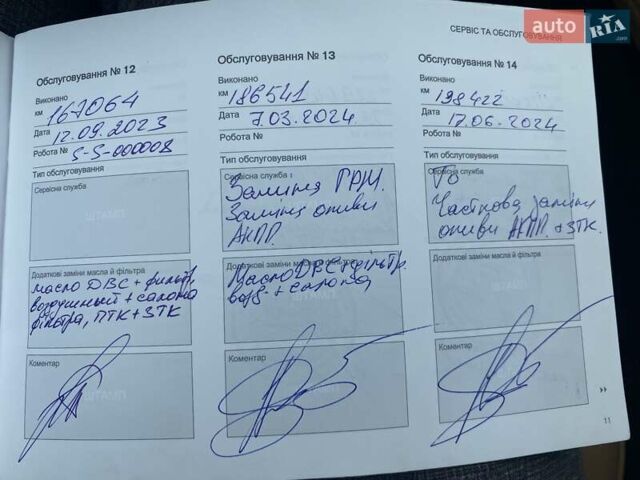 auto RIA .com
СЕРВІС ТА ОБСЛУГОВУВАННЯ
Обслуговування № 12
Виконано
км 167064
Дата 12.09.2023
Робота № S-S-000008
Тип обслуговування
Сервісна служба
Додаткові заміни масла й фільтра
масло ДВС + фильтр,
воздушный + салона
фільтра, ПТК + ЗТК
Коментар
Обслуговування № 13
Виконано
км 186541
Дата 7.03.2024
Робота №
Тип обслуговування
Сервісна служба
Заміна ГРМ.
Заміна оливи
АКПП.
Додаткові заміни масла й фільтра
Масло ДВС + фільтр.
возд. + салона
Коментар
Обслуговування № 14
Виконано
км 198422
Дата 17.06.2024
Робота №
Тип обслуговування
Сервісна служба
ТО
Часткова заміна
оливи АКПП. + ЗТК.
Додаткові заміни масла й фільтра
Коментар
11